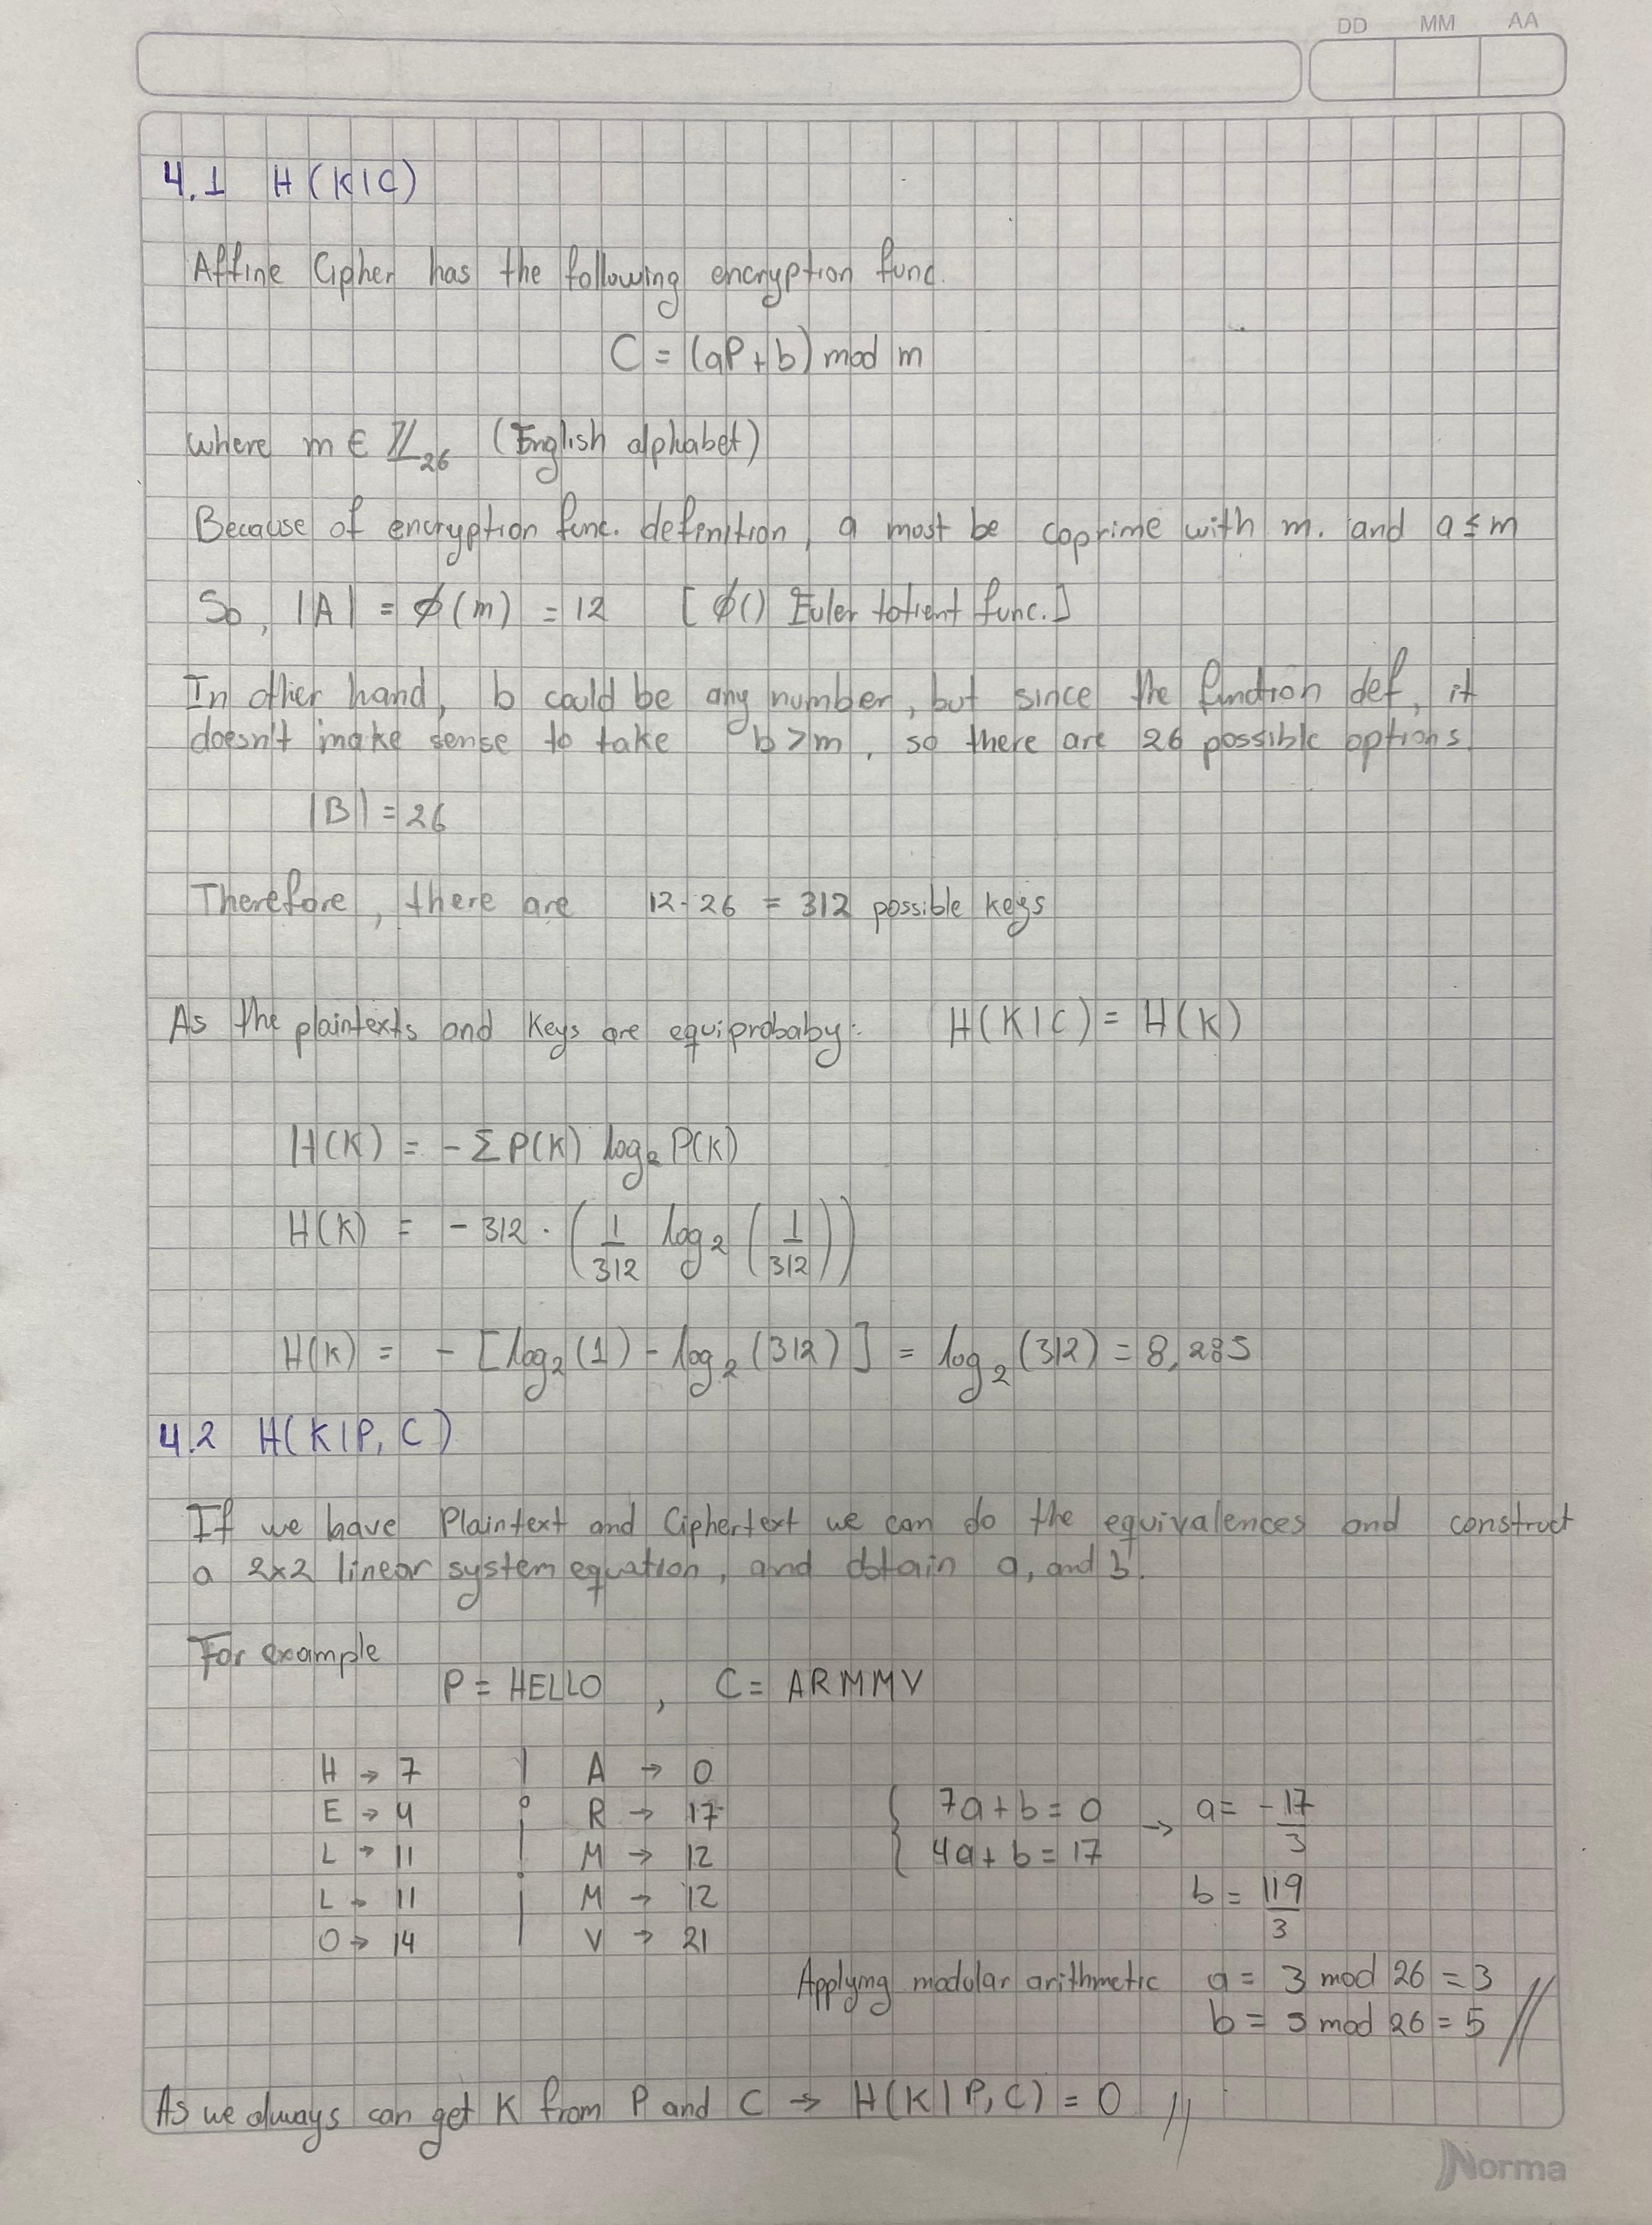 DD MM AA
4.1 H(K|C)
Affine Cipher has the following encryption func.
C = (aP + b) mod m
where m ∈ ℤ₂₆ (English alphabet)
Because of encryption func. definition, a most be coprime with m. and a ≤ m
So, |A| = ϕ(m) = 12 [ϕ() Euler totient func.]
In other hand, b could be any number, but since the function def, it
doesn't make sense to take b > m, so there are 26 possible options
|B| = 26
Therefore, there are 12·26 = 312 possible keys
As the plaintexts and keys are equiprobaby: H(K|C) = H(K)
H(K) = - Σ P(K) log₂ P(K)
H(K) = - 312 · (1/312 log₂ (1/312))
H(K) = - [log₂(1) - log₂(312)] = log₂(312) = 8,285
4.2 H(K|P, C)
If we have Plaintext and Ciphertext we can do the equivalences and construct
a 2x2 linear system equation, and obtain a, and b.
For example
P = HELLO , C = ARMMV
H → 7 | A → 0
E → 4 | R → 17 { 7a + b = 0 → a = -17/3
L → 11 | M → 12 4a + b = 17
L → 11 | M → 12 b = 119/3
O → 14 | V → 21
Applying modular arithmetic a = 3 mod 26 = 3
b = 5 mod 26 = 5 //
As we always can get K from P and C → H(K|P, C) = 0 //
Norma